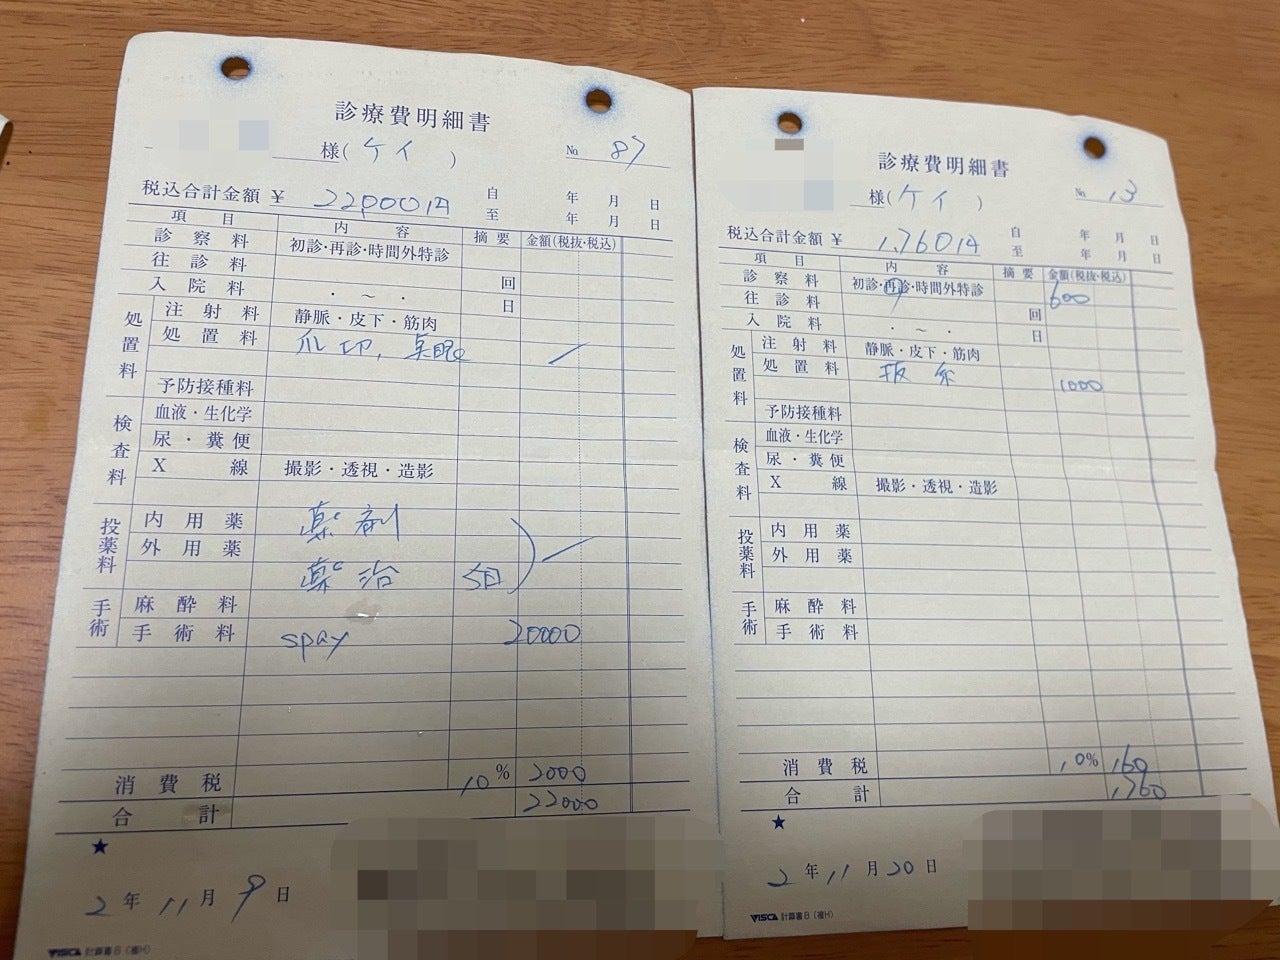 診療費明細書
様(ケイ) № 87
税込合計金額 ¥ 22,000円 自 年 月 日
至 年 月 日
項目 内容 摘要 金額(税抜・税込)
診察料 初診・再診・時間外特診
往診料 回
入院料 ・ ~ ・ 日
処置料 注射料 静脈・皮下・筋肉
処置料 爪切,
予防接種料
検査料 血液・生化学
尿・糞便
X線 撮影・透視・造影
投薬料 内用薬 薬剤
外用薬
薬治 5日
手術 麻酔料
手術料 spay 20000
消費税 10% 2000
合計 22000
★
2年11月9日
VISCA 計算書B(複H)
診療費明細書
様(ケイ) № 13
税込合計金額 ¥ 1,760円 自 年 月 日
至 年 月 日
項目 内容 摘要 金額(税抜・税込)
診察料 初診・再診・時間外特診 600
往診料 回
入院料 ・ ~ ・ 日
処置料 注射料 静脈・皮下・筋肉
処置料 抜糸 1000
予防接種料
検査料 血液・生化学
尿・糞便
X線 撮影・透視・造影
投薬料 内用薬
外用薬
手術 麻酔料
手術料
消費税 10% 160
合計 1,760
★
2年11月20日
VISCA 計算書B(複H)